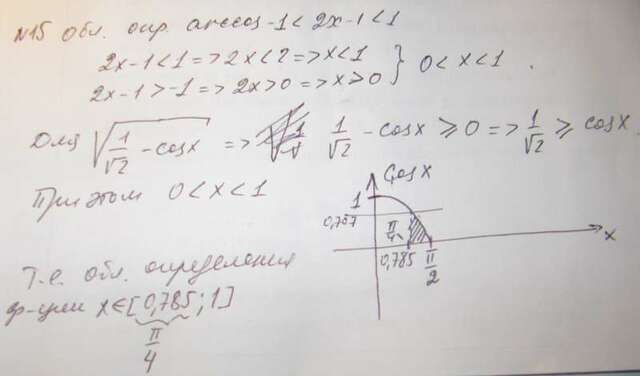 №15 Обл. опр. arccos -1 < 2x-1 < 1
2x-1<1 => 2x<2 => x<1
2x-1>-1 => 2x>0 => x>0 } 0<x<1.
Для √(1/√2 - cosx) => 1/√2 - cosx ≥ 0 => 1/√2 ≥ cosx.
При этом 0<x<1
Cos x
1
π/4
x
0,785
π/2
Т.е. обл. определения
ф-ции x∈[0,785; 1]
π/4